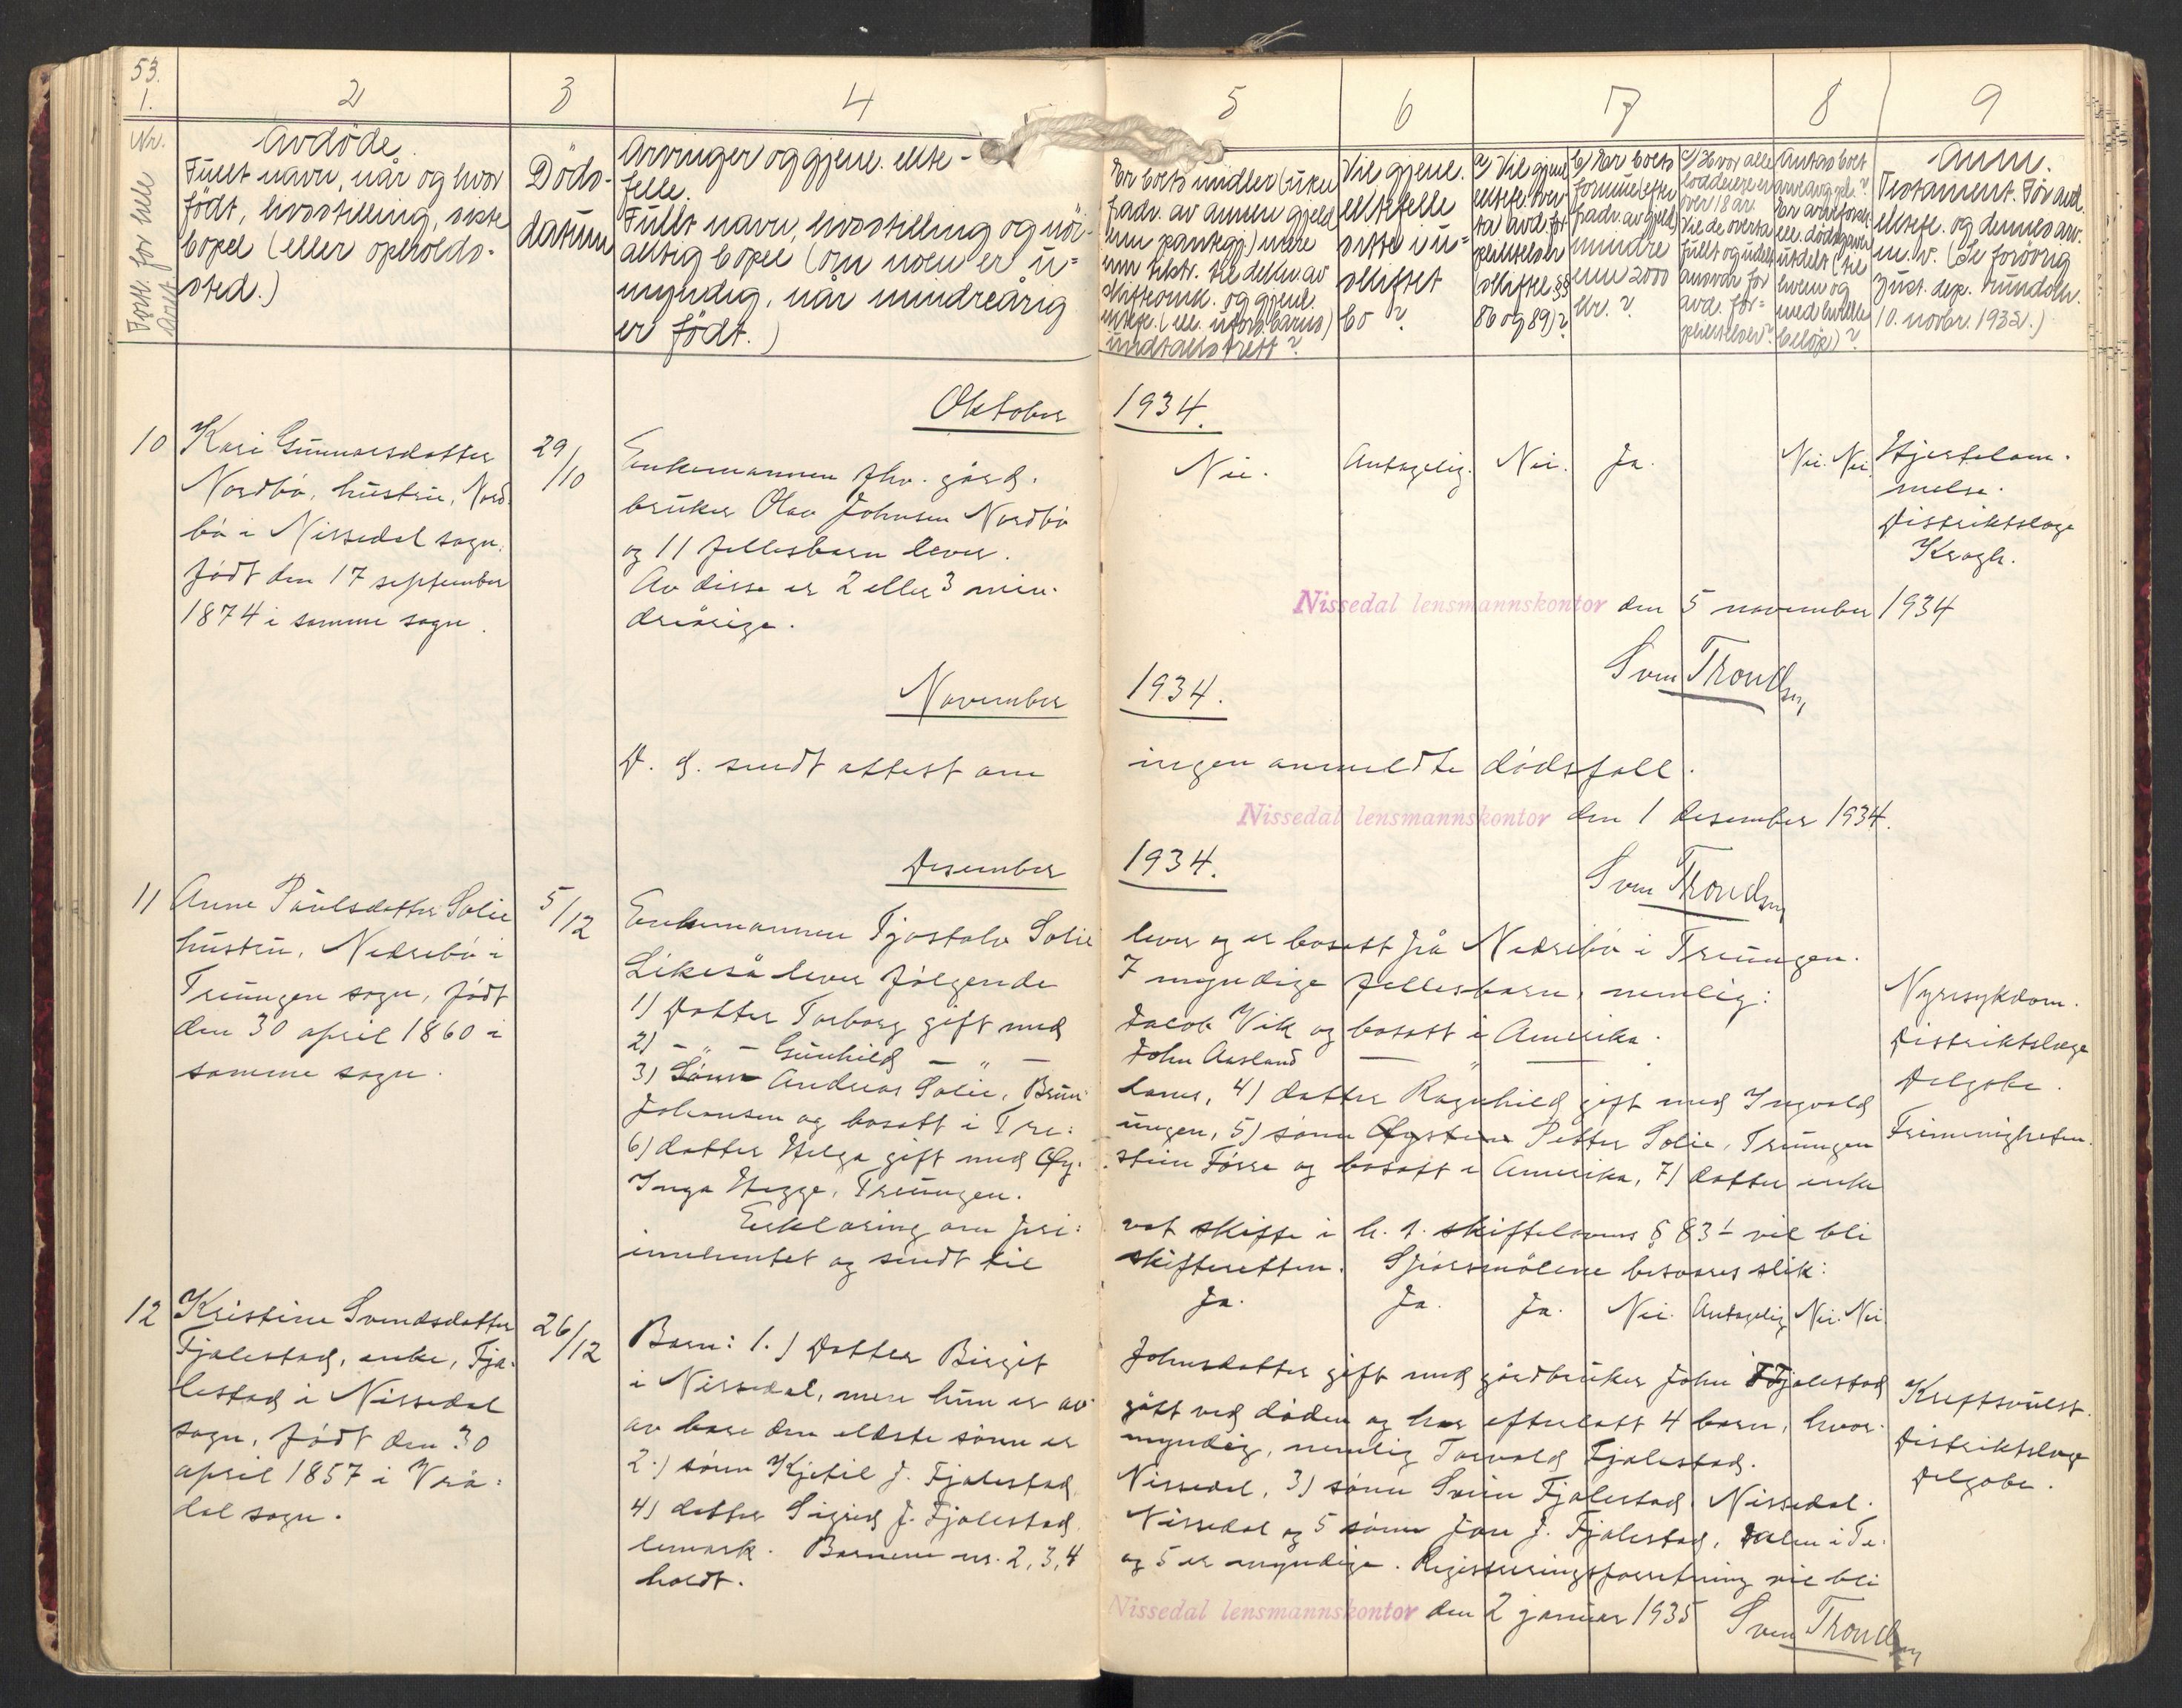 53.
1. 2 3 4 5 6 7 8 9
Nr.
Forts. for hele
året
Avdöde.
Fullt navn, når og hvor
födt, livsstilling, siste
bopel (eller opholds-
sted.)
Döds-
datum
Arvinger og gjenl. ekte-
felle.
Fullt navn, livsstilling og nöi-
aktig bopel (om noen er u-
myndig, når mindreårig
er födt.)
Er boets midler (uten
fradr. av annen gjeld
enn pantegj.) mere
enn tilstr. til dekn. av
skifteomk. og gjenl.
ektef. (ell. ufors. barns)
undtaksrett?
Vil gjenl.
ektefelle
sitte i u-
skiftet
bo?
a) Vil gjenl.
ektef. over-
ta avd. for-
pliktelser
(skiftel. §§
86 og 89)?
b) Er boets
formue (efter
fradr. av gjeld)
mindre
enn 2000
kr.?
c) Hvor alle
loddeiere er
over 18 år.
Vil de overta
fullt og udelt
ansvar for
avd. for-
pliktelser?
Antas boet
arveavg. pl.?
Er arveforsk.
ell. dödsgaver
utdelt (til
hvem og
med hvilke
belöp)?
Anm.
Testament. För avd.
ektef. og dennes arv.
m. v. (Se forövrig
Just. dep. rundskr.
10. novbr. 1932.)
Oktober 1934.
10
Kari Gunnarsdatter
Nordbö, hustru, Nord-
bö i Nissedal sogn.
Födt den 17 september
1874 i samme sogn.
29/10
Enkemannen fhv. gård-
bruker Olav Johnsen Nordbö
og 11 fellesbarn lever.
Av disse er 2 eller 3 min-
dreårige.
Nei. Antagelig. Nei. Ja. Nei. Nei.
Hjertelam-
melse.
Distriktslæge
Krogh.
Nissedal lensmannskontor den 5 november 1934
Sven Trondsen
November 1934.
D. d. sendt attest om ingen anmeldte dödsfall.
Nissedal lensmannskontor den 1 desember 1934.
Sven Trondsen
Desember 1934.
11
Anne Paulsdatter Solie
hustru, Nedrebö i
Treungen sogn, födt
den 30 april 1860 i
samme sogn.
5/12
Enkemannen Tjostolv Solie lever og er bosatt på Nedrebö i Treungen.
Likeså lever fölgende 7 myndige fellesbarn, nemlig:
1) Datter Torborg gift med Jacob Vik og bosatt i Amerika.
2) - " - Gunhild - " - John Aasland - " -
3) Sönn Andreas Solie, Brun- lanes, 4) datter Ragnhild gift med Ingvald
Johansen og bosatt i Tre- ungen, 5) sönn Øystein Petter Solie, Treungen
6) datter Helga gift med Øy- stein Försse og bosatt i Amerika, 7) datter enke
Inga Hegge, Treungen.
Erklæring om pri- vat skifte i h. t. skiftelovens § 83 1 vil bli
innhentet og sendt til skifteretten. Spörsmålene besvares slik:
Ja. Ja. Ja. Nei. Antagelig Nei. Nei.
Nyresykdom.
Distriktslæge
Delgobe.
12
Kristine Svendsdatter
Fjalestad, enke, Fja-
lestad i Nissedal
sogn, födt den 30
april 1857 i Vrå-
dal sogn.
26/12
Barn: 1.) Datter Birgit Johnsdatter gift med gårdbruker John Fjalestad
i Nissedal, men hun er av- gått ved döden og har efterlatt 4 barn, hvor-
av bare den eldste sönn er myndig, nemlig Torvald Fjalestad.
2.) sönn Kjetil J. Fjalestad, Nissedal, 3) sönn Svein Fjalestad, Nissedal.
4) datter Sigrid J. Fjalestad, Nissedal og 5 sönn Jon J. Fjalestad, Dalen i Te-
lemark. Barnene nr. 2, 3, 4 og 5 er myndige. Registreringsforretning vil bli
holdt.
Kreftsvulst.
Distriktslæge
Delgobe.
Nissedal lensmannskontor den 2 januar 1935 Sven Trondsen